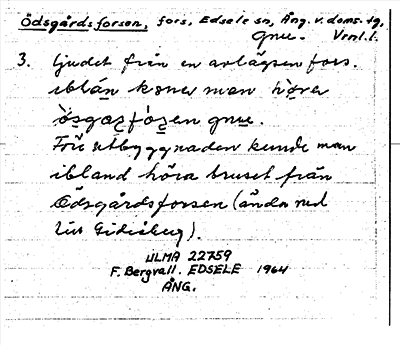 Ödsgårdsforsen, fors, Edsele sn, Ång. v. doms. tg,
gnue. Vrnl.l.
3. ljudet från en avlägsen fors.
iblán konnr man hò̱ra
ò̱sgaʐfò̱ʐen gnu̱e.
Före utbyggnaden kunde man
ibland höra bruset från
Ödsgårdsforsen (ända ned
till Gideåberg).
ULMA 22759
F. Bergvall. EDSELE 1964
ÅNG.